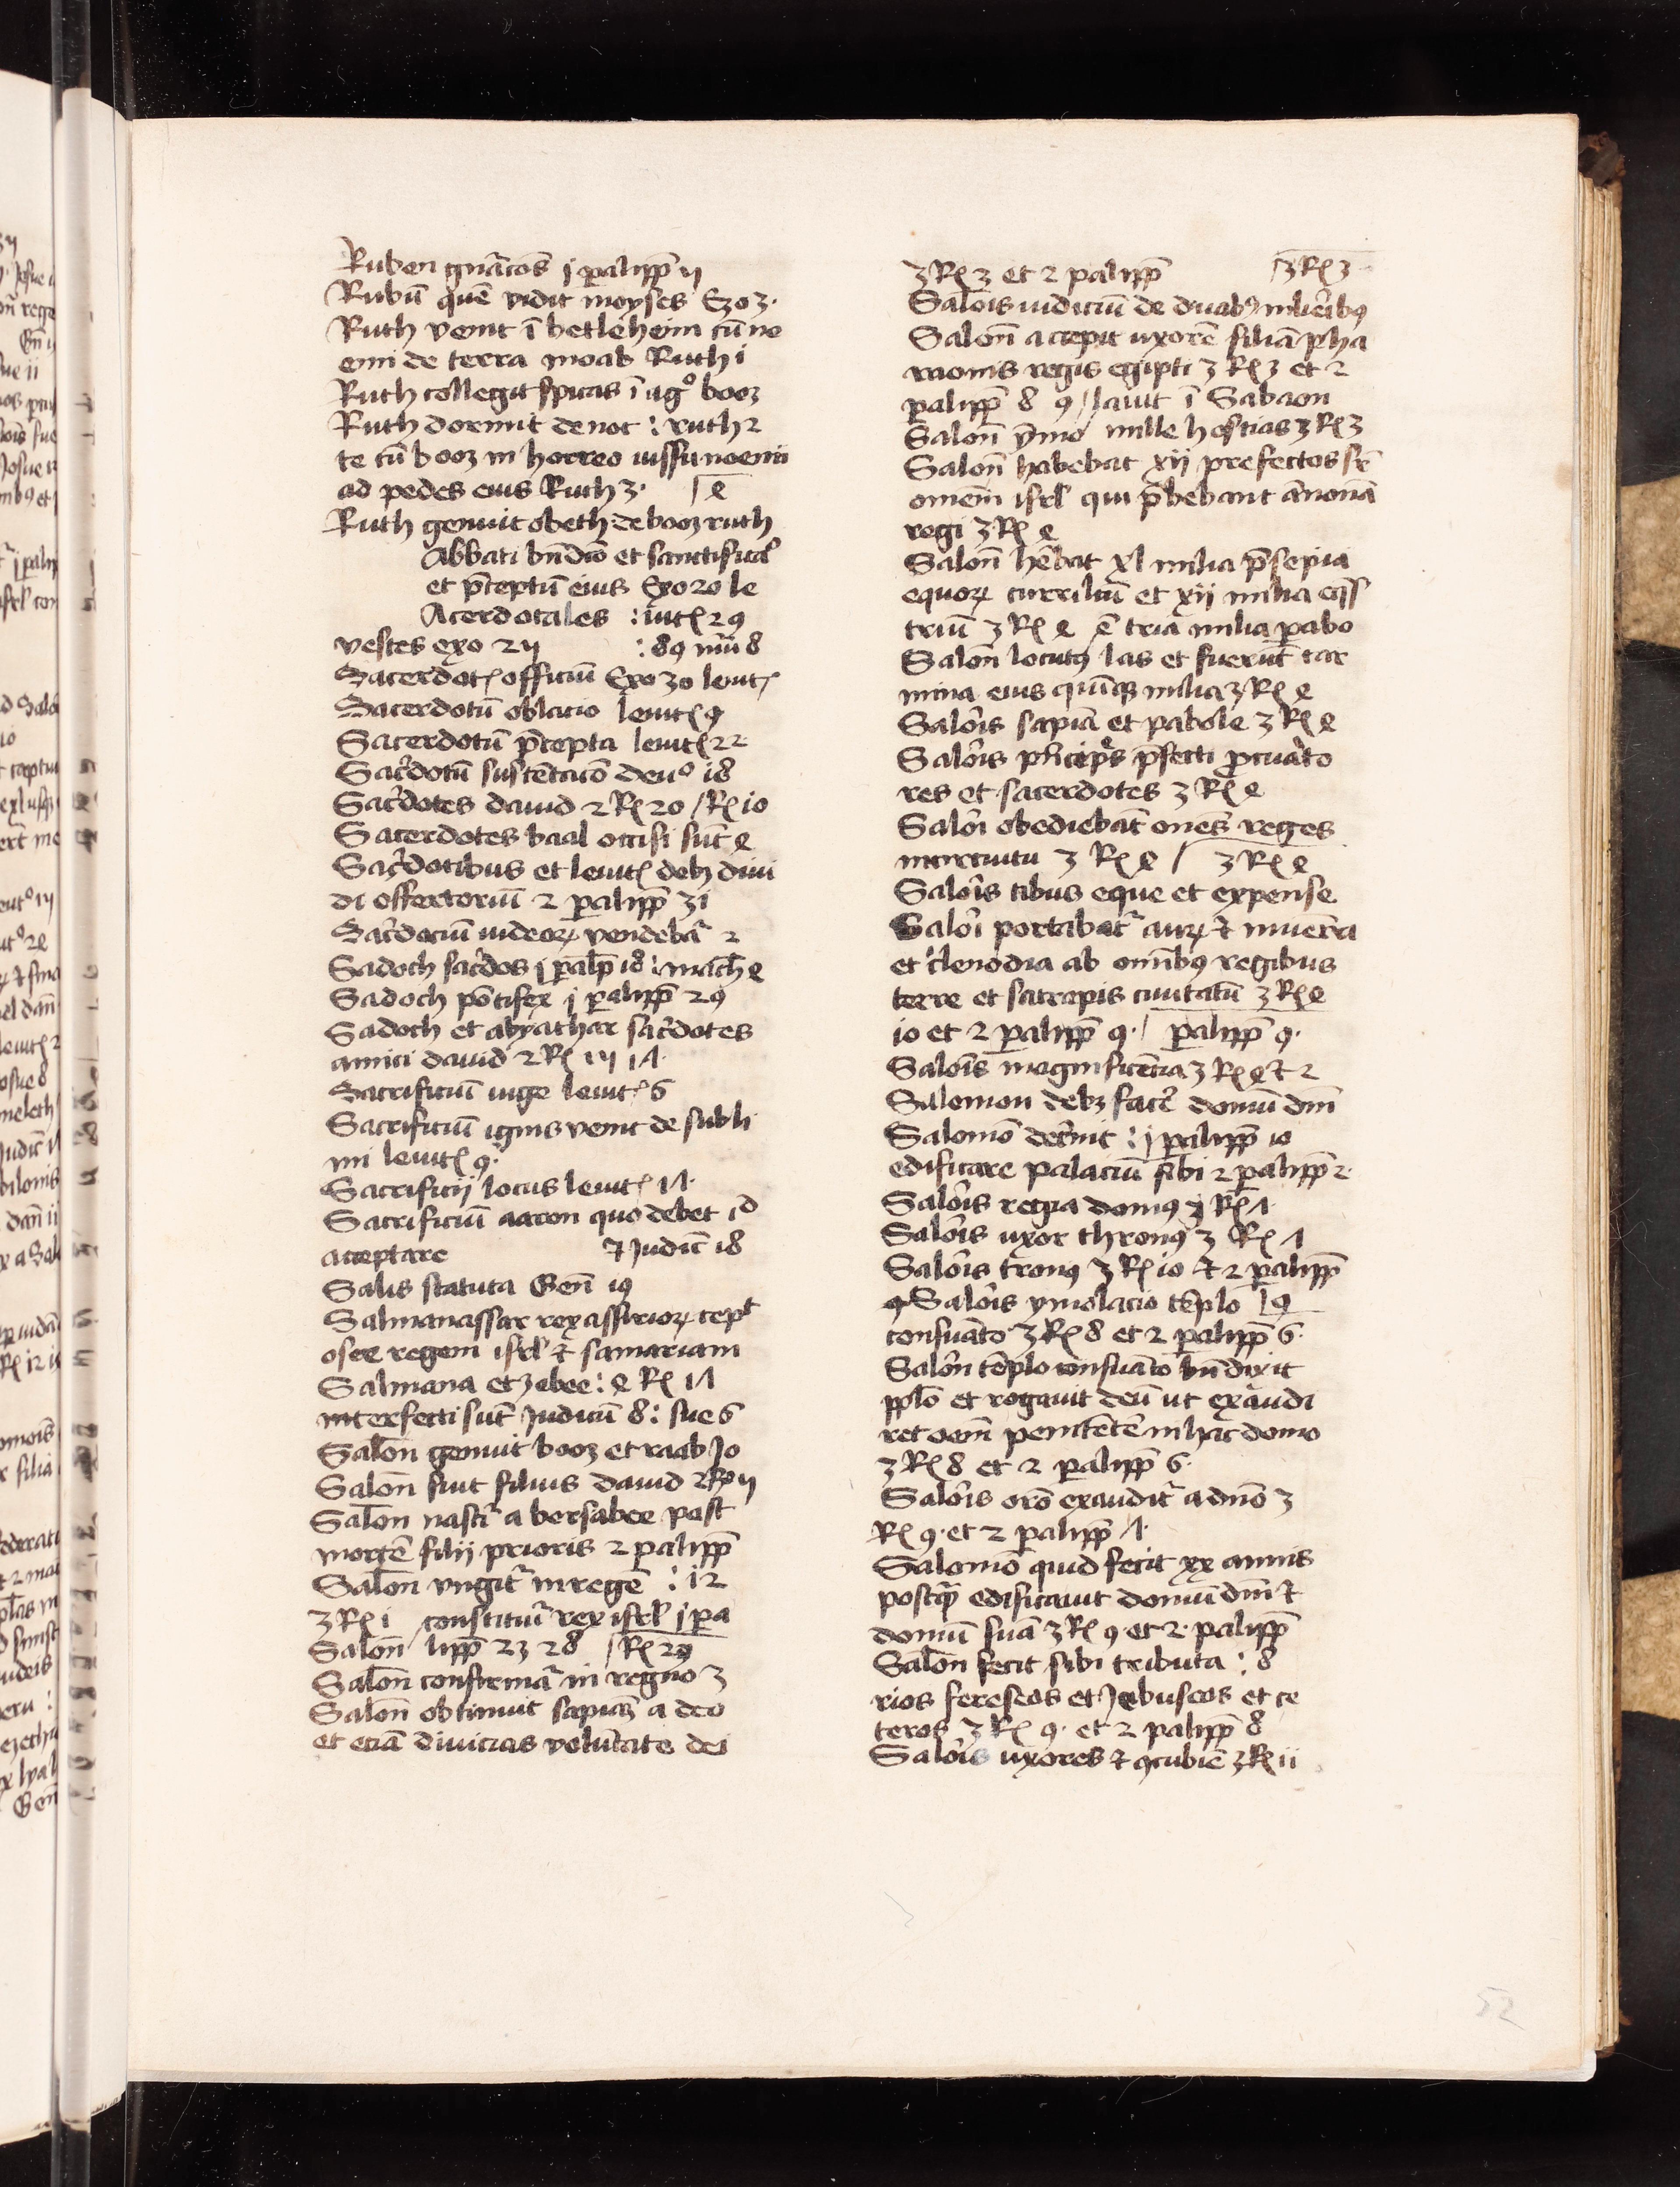 Ruben gnãcoẽs j palipp̃ ij
Rubũ quẽ vidit moyses Exo 3·
Ruth venit ĩ betleheim cũ no
emi de terra moab Ruth i
Ruth collegit spicas ĩ agº booz
Ruth dormit de noc : ruth 2
te cũ booz in horreo iussu noemi
ad pedes eius Ruth 3· / 4
Ruth genuit obeth de booz ruth
Abbati bñdicõ et sanctificac̃
et p̃ceptũ eius Exo 20 le
Acerdotales : uitꝭ 29
vestes exo 2ij : 89 nũ 8
Sacerdotꝭ officiũ Exo 30 leuitꝭ
Sacerdotũ oblacio leuitꝭ 9
Sacerdotũ p̃cepta leuitꝭ 22
Sac̃dotũ sustẽtacõ deuº 18
Sac̃dotes dauid 2 Rꝭ 20 / Rꝭ 10
Sacerdotes baal occisi sũt 4
Sac̃dotibus et leuitꝭ debꝫ diui
di offertoriũ 2 palipp̃ 31
Sac̃dociũ iudeoꝝ vendebat̃ 2
Sadoch sac̃dos j palip̃ 18 : mach̃ 4
Sadoch põtifex j palipp̃ 29
Sadoch et abyathar sac̃dotes
amici dauid 2 Rꝭ 1ij 1Λ·
Sacrificiũ iuge leuitꝭ 6
Sacrificiũ ignis venit de subli
mi leuitꝭ 9·
Sacrificij locus leuitꝭ 1Λ·
Sacrificiũ aaron quo debet id
acceptare ⁊ Judic̃ 18
Salis statuta Geñ 19
Salmanassar rex assirioꝝ cepᵗ
osee regem isrl̃ ⁊ samariam
Salmana et zebee : 4 Rꝭ 1Λ
interfecti sũt Judicũ 8 : sue 6
Salõn genuit booz et raab Jo
Salom̃ fuit filius dauid 2 Rꝭ ij
Salõn nascit̃ a bersabee post
mortẽ filij prioris 2 palipp̃
Salõn vngit̃ in regẽ : 12
3 Rꝭ i constituit̃ rex isrl̃ j pa
Salom̃ lipp̃ 23 28 / Rꝭ 29
Salõn confirmat̃ in regno 3
Salom̃ obtinuit sapiaꝫ a deo
et eciã diuicias volũtate dei
3 Rꝭ 3 et 2 palipp̃ / 3 Rꝭ 3
Salõis iudiciũ de duabꝰ mlieribꝰ
Salom̃ accepit uxorẽ filiã pha
raonis regis egipti 3 Rꝭ 3 et 2
palipp̃ 8 9 / lauit ĩ Gabaon
Salom̃ ymo mille hostias 3 Rꝭ 3
Salom̃ habebat xij prefectos sr̃
omem̃ isrl̃ qui p̃bebant ãnonã
regi 3 Rꝭ 4
Salom̃ hẽbat xl milia p̃sepia
equoꝝ curriliũ et xij milia eq̃s
triũ 3 Rꝭ 4 ẽ tria milia pabo
Salom̃ locutꝰ las et fuerũt car
mina eius quinqꝫ milia 3 Rꝭ 4
Salõis sapiã et pabole 3 Rꝭ 4
Salõis p̃ncipes p̃fecti procuãto
res et sacerdotes 3 Rꝭ 4
Salõi obediebãt oñes reges
in circuitu 3 Rꝭ 4 / 3 Rꝭ 4
Salõis cibus eque et expense
Salõi portabat̃ auꝝ ⁊ muñera
et clenodia ab omñibꝰ regibus
terre et satrapis ciuitatũ 3 Rꝭ 4
10 et 2 palipp̃ 9· / palipp̃ 9·
Salõis magnificẽtia 3 Rꝭ 4 ⁊ 2
Salemon debꝫ facẽ domũ dñi
Salomõ decr̃nit : j palipp̃ 10
edificare palaciũ sibi 2 palipp̃ 2·
Salõis regia domꝰ 3 Rꝭ Λ·
Salõis uxor thronꝰ 3 Rꝭ Λ
Salõis tronꝰ 3 Rꝭ 10 ⁊ 2 palipp̃
9 Salõis ymolacio tẽplo / 9
consuãto 3 Rꝭ 8 et 2 palipp̃ 6·
Salõn tẽplo consuãto bñdixit
ppl̃o et rogauit deũ ut exaudi
ret oem̃ penitẽtẽ in hac domo
3 Rꝭ 8 et 2 palipp̃ 6·
Salõis orõ exaudit̃ a dño 3
Rꝭ 9· et 2 palipp̃ Λ·
Salomõ quid fecit xx annis
postq̃ edificauit domũ dñi ⁊
domũ suã 3 Rꝭ 9 et 2· palipp̃
Salõn fecit sibi tributa : 8
rios fereseos et Jebuseos et ce
teros 3 Rꝭ 9· et 2 palipp̃ 8
Salõis uxores ⁊ ꝯcubiẽ 3 Rꝭ ii
52